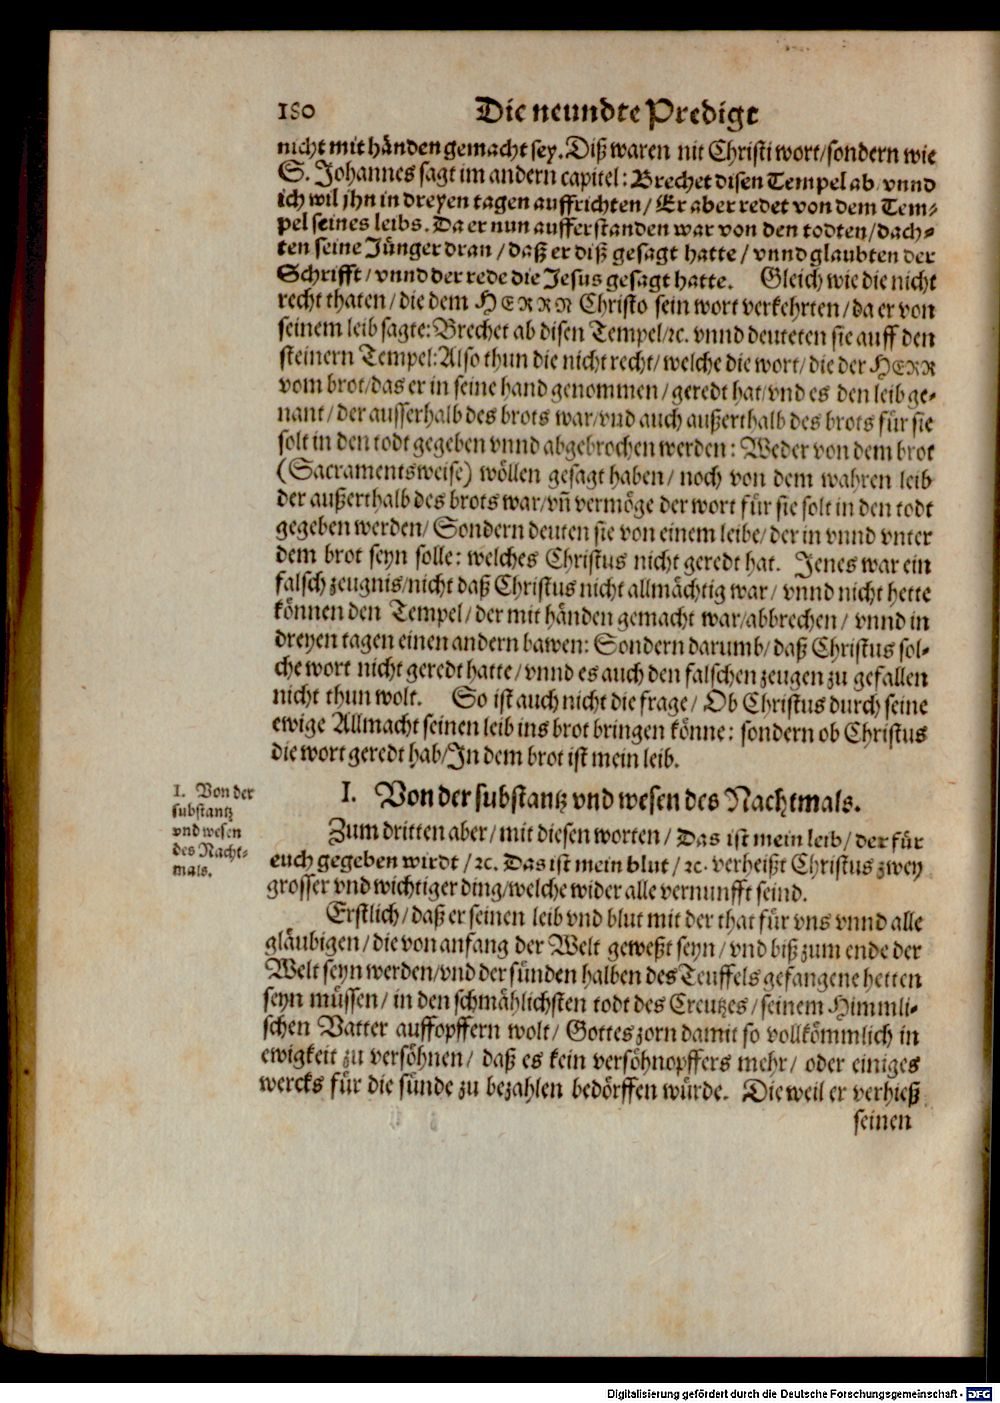 180 Die neundte Predigt
nicht mit händen gemacht sey. Diß waren nit Christi wort/ sondern wie
S. Johannes sagt im andern capitel: Brechet disen Tempel ab/ vnnd
ich wil jhn in dreyen tagen auffrichten/ Er aber redet von dem Tem-
pel seines leibs. Da er nun aufferstanden war von den todten/ dach-
ten seine Jünger dran/ daß er diß gesagt hatte/ vnnd glaubten der
Schrifft/ vnnd der rede die Jesus gesagt hatte. Gleich wie die nicht
recht thaten/ die dem HERRN Christo sein wort verkehrten/ da er von
seinem leib sagte: Brechet ab disen Tempel/ ꝛc. vnnd deuteten sie auff den
steinern Tempel: Also thun die nicht recht/ welche die wort/ die der HERR
vom brot/ das er in seine hand genommen/ geredt hat/ vnd es den leib ge-
nant/ der ausserhalb des brots war/ vnd auch außerthalb des brots für sie
solt in den todt gegeben vnnd abgebrochen werden: Weder von dem brot
(Sacramentsweise) wöllen gesagt haben/ noch von dem wahren leib
der außerthalb des brots war/ vñ vermöge der wort für sie solt in den todt
gegeben werden/ Sondern deuten sie von einem leibe/ der in vnnd vnter
dem brot seyn solle: welches Christus nicht geredt hat. Jenes war ein
falsch zeugnis/ nicht daß Christus nicht allmächtig war/ vnnd nicht hette
können den Tempel/ der mit händen gemacht war/ abbrechen/ vnnd in
dreyen tagen einen andern bawen: Sondern darumb/ daß Christus sol-
che wort nicht geredt hatte/ vnnd es auch den falschen zeugen zu gefallen
nicht thun wolt. So ist auch nicht die frage/ Ob Christus durch seine
ewige Allmacht seinen leib ins brot bringen könne: sondern ob Christus
die wort geredt hab/ In dem brot ist mein leib.
I. Von der substantz vnd wesen des Nachtmals.
1. Von der
substantz
vnd wesen
des Nacht-
mals.
Zum dritten aber/ mit diesen worten/ Das ist mein leib/ der für
euch gegeben wirdt/ ꝛc. Das ist mein blut/ ꝛc. verheißt Christus zwey
grosser vnd wichtiger ding/ welche wider alle vernunfft seind.
Erstlich/ daß er seinen leib vnd blut mit der that für vns vnnd alle
gläubigen/ die von anfang der Welt geweßt seyn/ vnd biß zum ende der
Welt seyn werden/ vnd der sünden halben des Teuffels gefangene hetten
seyn müssen/ in den schmählichsten todt des Creutzes/ seinem Himmli-
schen Vatter auffopffern wolt/ Gottes zorn damit so vollkömmlich in
ewigkeit zu versöhnen/ daß es kein versöhnopffers mehr/ oder einiges
wercks für die sünde zu bezahlen bedörffen würde. Die weil er verhieß
seinen
Digitalisierung gefördert durch die Deutsche Forschungsgemeinschaft - DFG